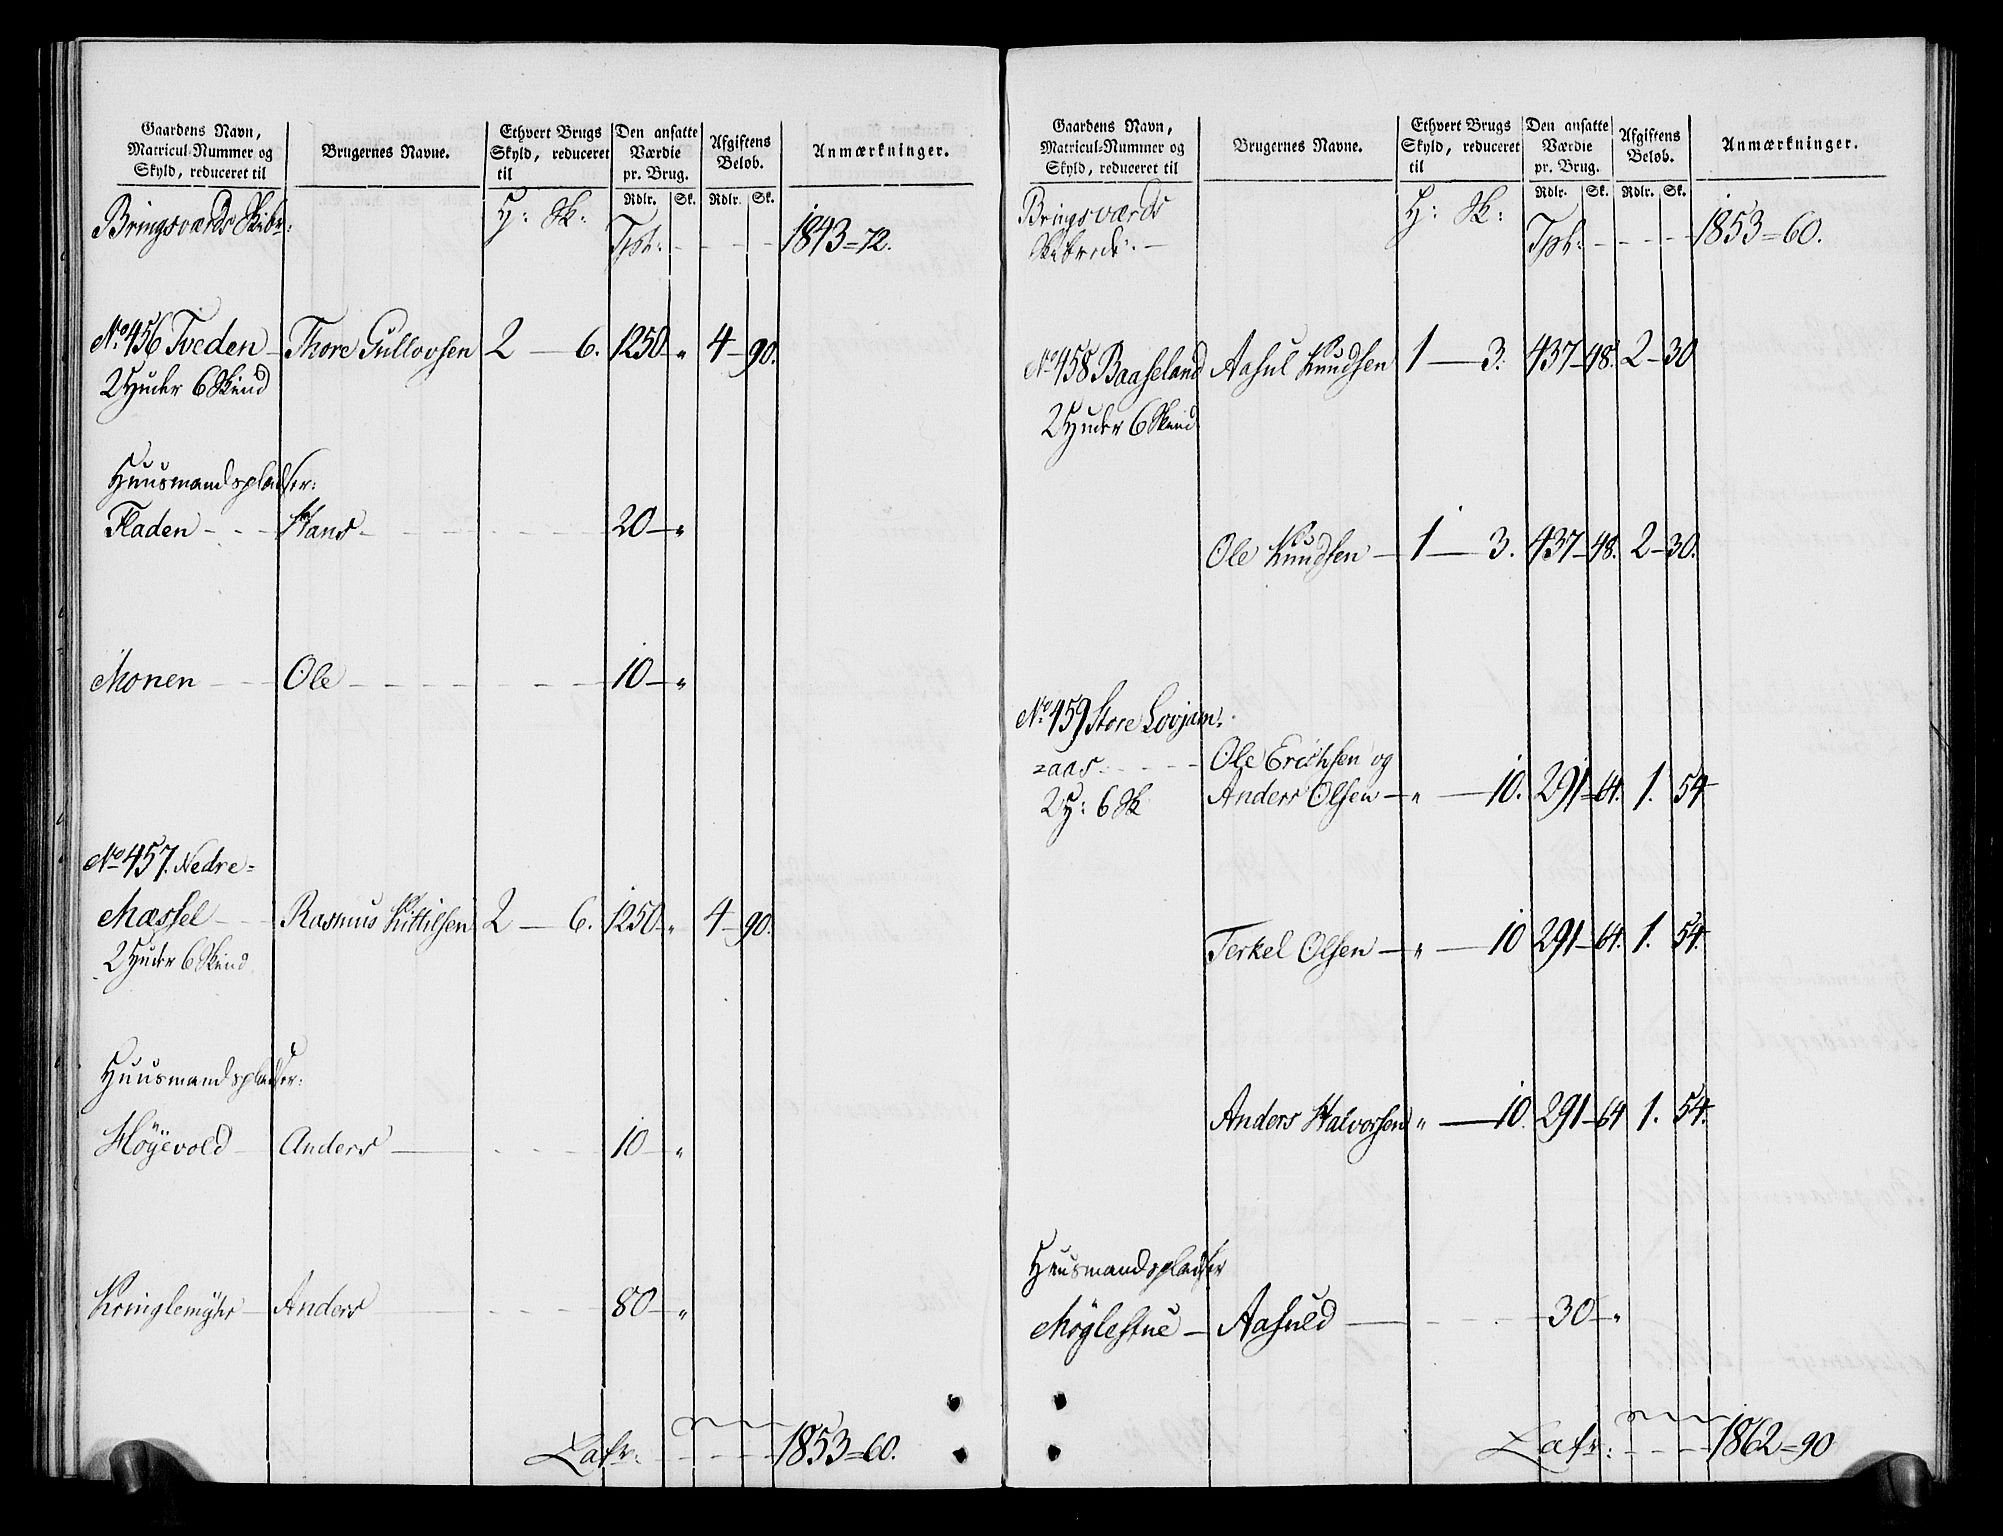 Gaardens Navn,
Matricul-Nummer og
Skyld, reduceret til
Brugernes Navne.
Ethvert Brugs
Skyld, reduceret
til
Den ansatte
Værdie
pr. Brug.
Afgiftens
Beløb.
Anmærkninger.
Rdlr. Sk. Rdlr. Sk.
Bringsværds Skibr: H: Sk:
Tpt: - - - - 1843=72.
No 456 Tveden - Thore Gullovsen 2 — 6. 1250 " 4 - 90.
2 Huder 6 Skind
Huusmandspladser:
Fladen - - - Hans - - - - - 20 - "
Monen - - Ole - - - - - 10 - "
No 457. Nedre=
Mæssel - - Rasmus Kittilsen 2 — 6. 1250 - " 4 - 90.
2 Huder 6 Skind
Huusmandspladser:
Höyevold - Anders — - - - 10 - "
Kringlemyhr - Anders - - - - 80 - "
Latr: - - - - 1853=60.
Gaardens Navn,
Matricul-Nummer og
Skyld, reduceret til
Brugernes Navne.
Ethvert Brugs
Skyld, reduceret
til
Den ansatte
Værdie
pr. Brug.
Afgiftens
Beløb.
Anmærkninger.
Rdlr. Sk. Rdlr. Sk.
Bringsværds H: Sk:
Skibrede: - Tpt: - - - - 1853=60.
No 458 Baaseland Aasul Knudsen 1 — 3. 437 - 48. 2 - 30
2 Huder 6 Skind
Ole Knudsen - 1 — 3. 437 - 48. 2 - 30.
No 459 Store Lovjam=
=aas - - - - Ole Erichsen og
2 H: 6 Sk Anders Olsen - " — 10. 291 - 64. 1. 54
Terkel Olsen - " — 10 291 - 64. 1. 54.
Anders Halvorsen " — 10. 291 - 64 1. 54.
Huusmandspladser
Möglestue - Aasuld — - - - 30 - "
Latr: - - - - 1862=90